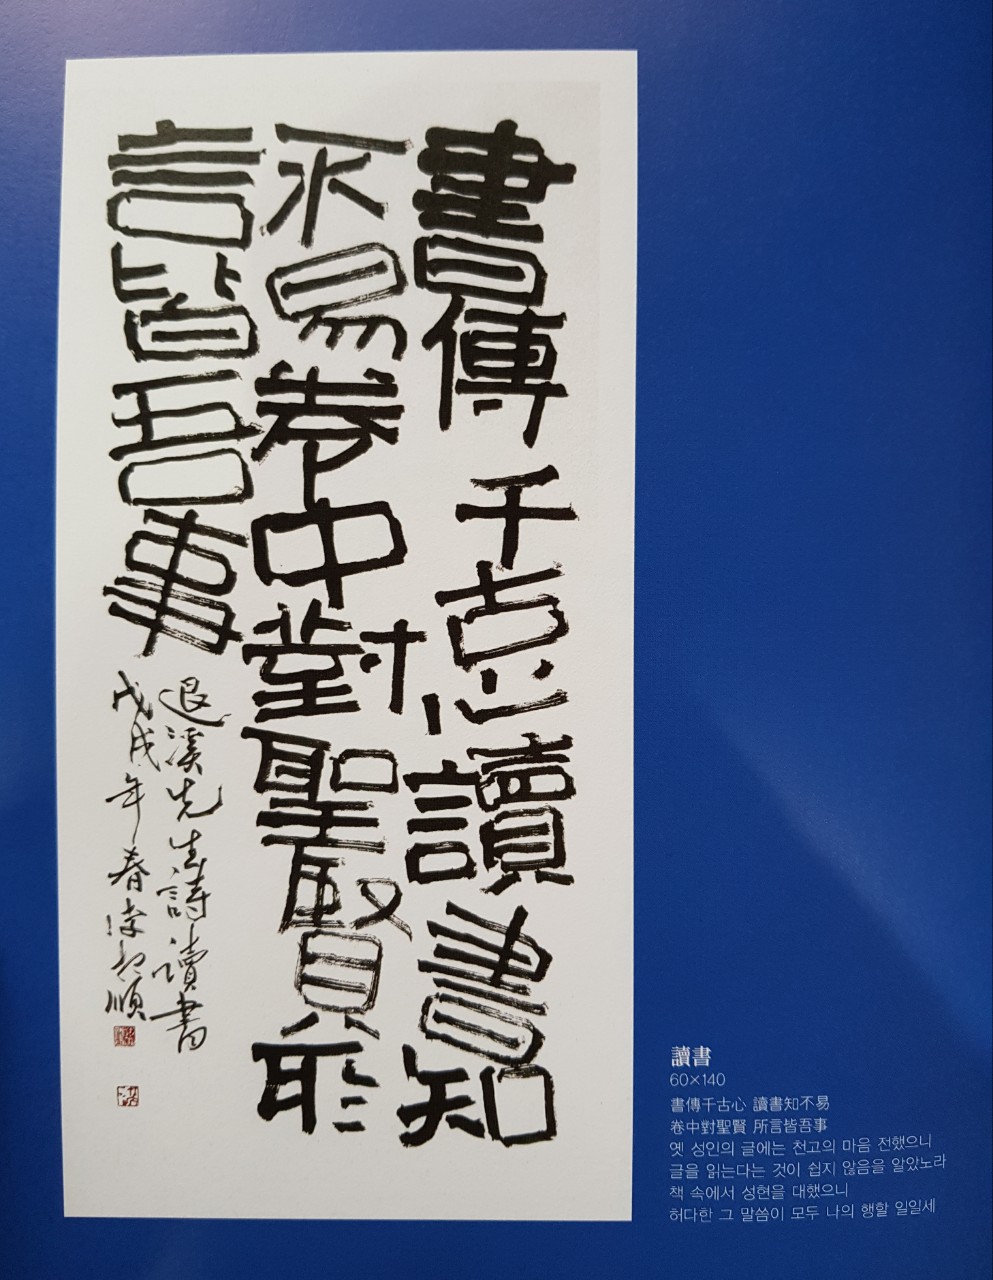 書傳千古心讀書知
不易卷中對聖賢所
言皆吾事
退溪先生詩讀書
戊戌年春 順
讀書
60×140
書傳千古心 讀書知不易
卷中對聖賢 所言皆吾事
옛 성인의 글에는 천고의 마음 전했으니
글을 읽는다는 것이 쉽지 않음을 알았노라
책 속에서 성현을 대했으니
허다한 그 말씀이 모두 나의 행할 일일세